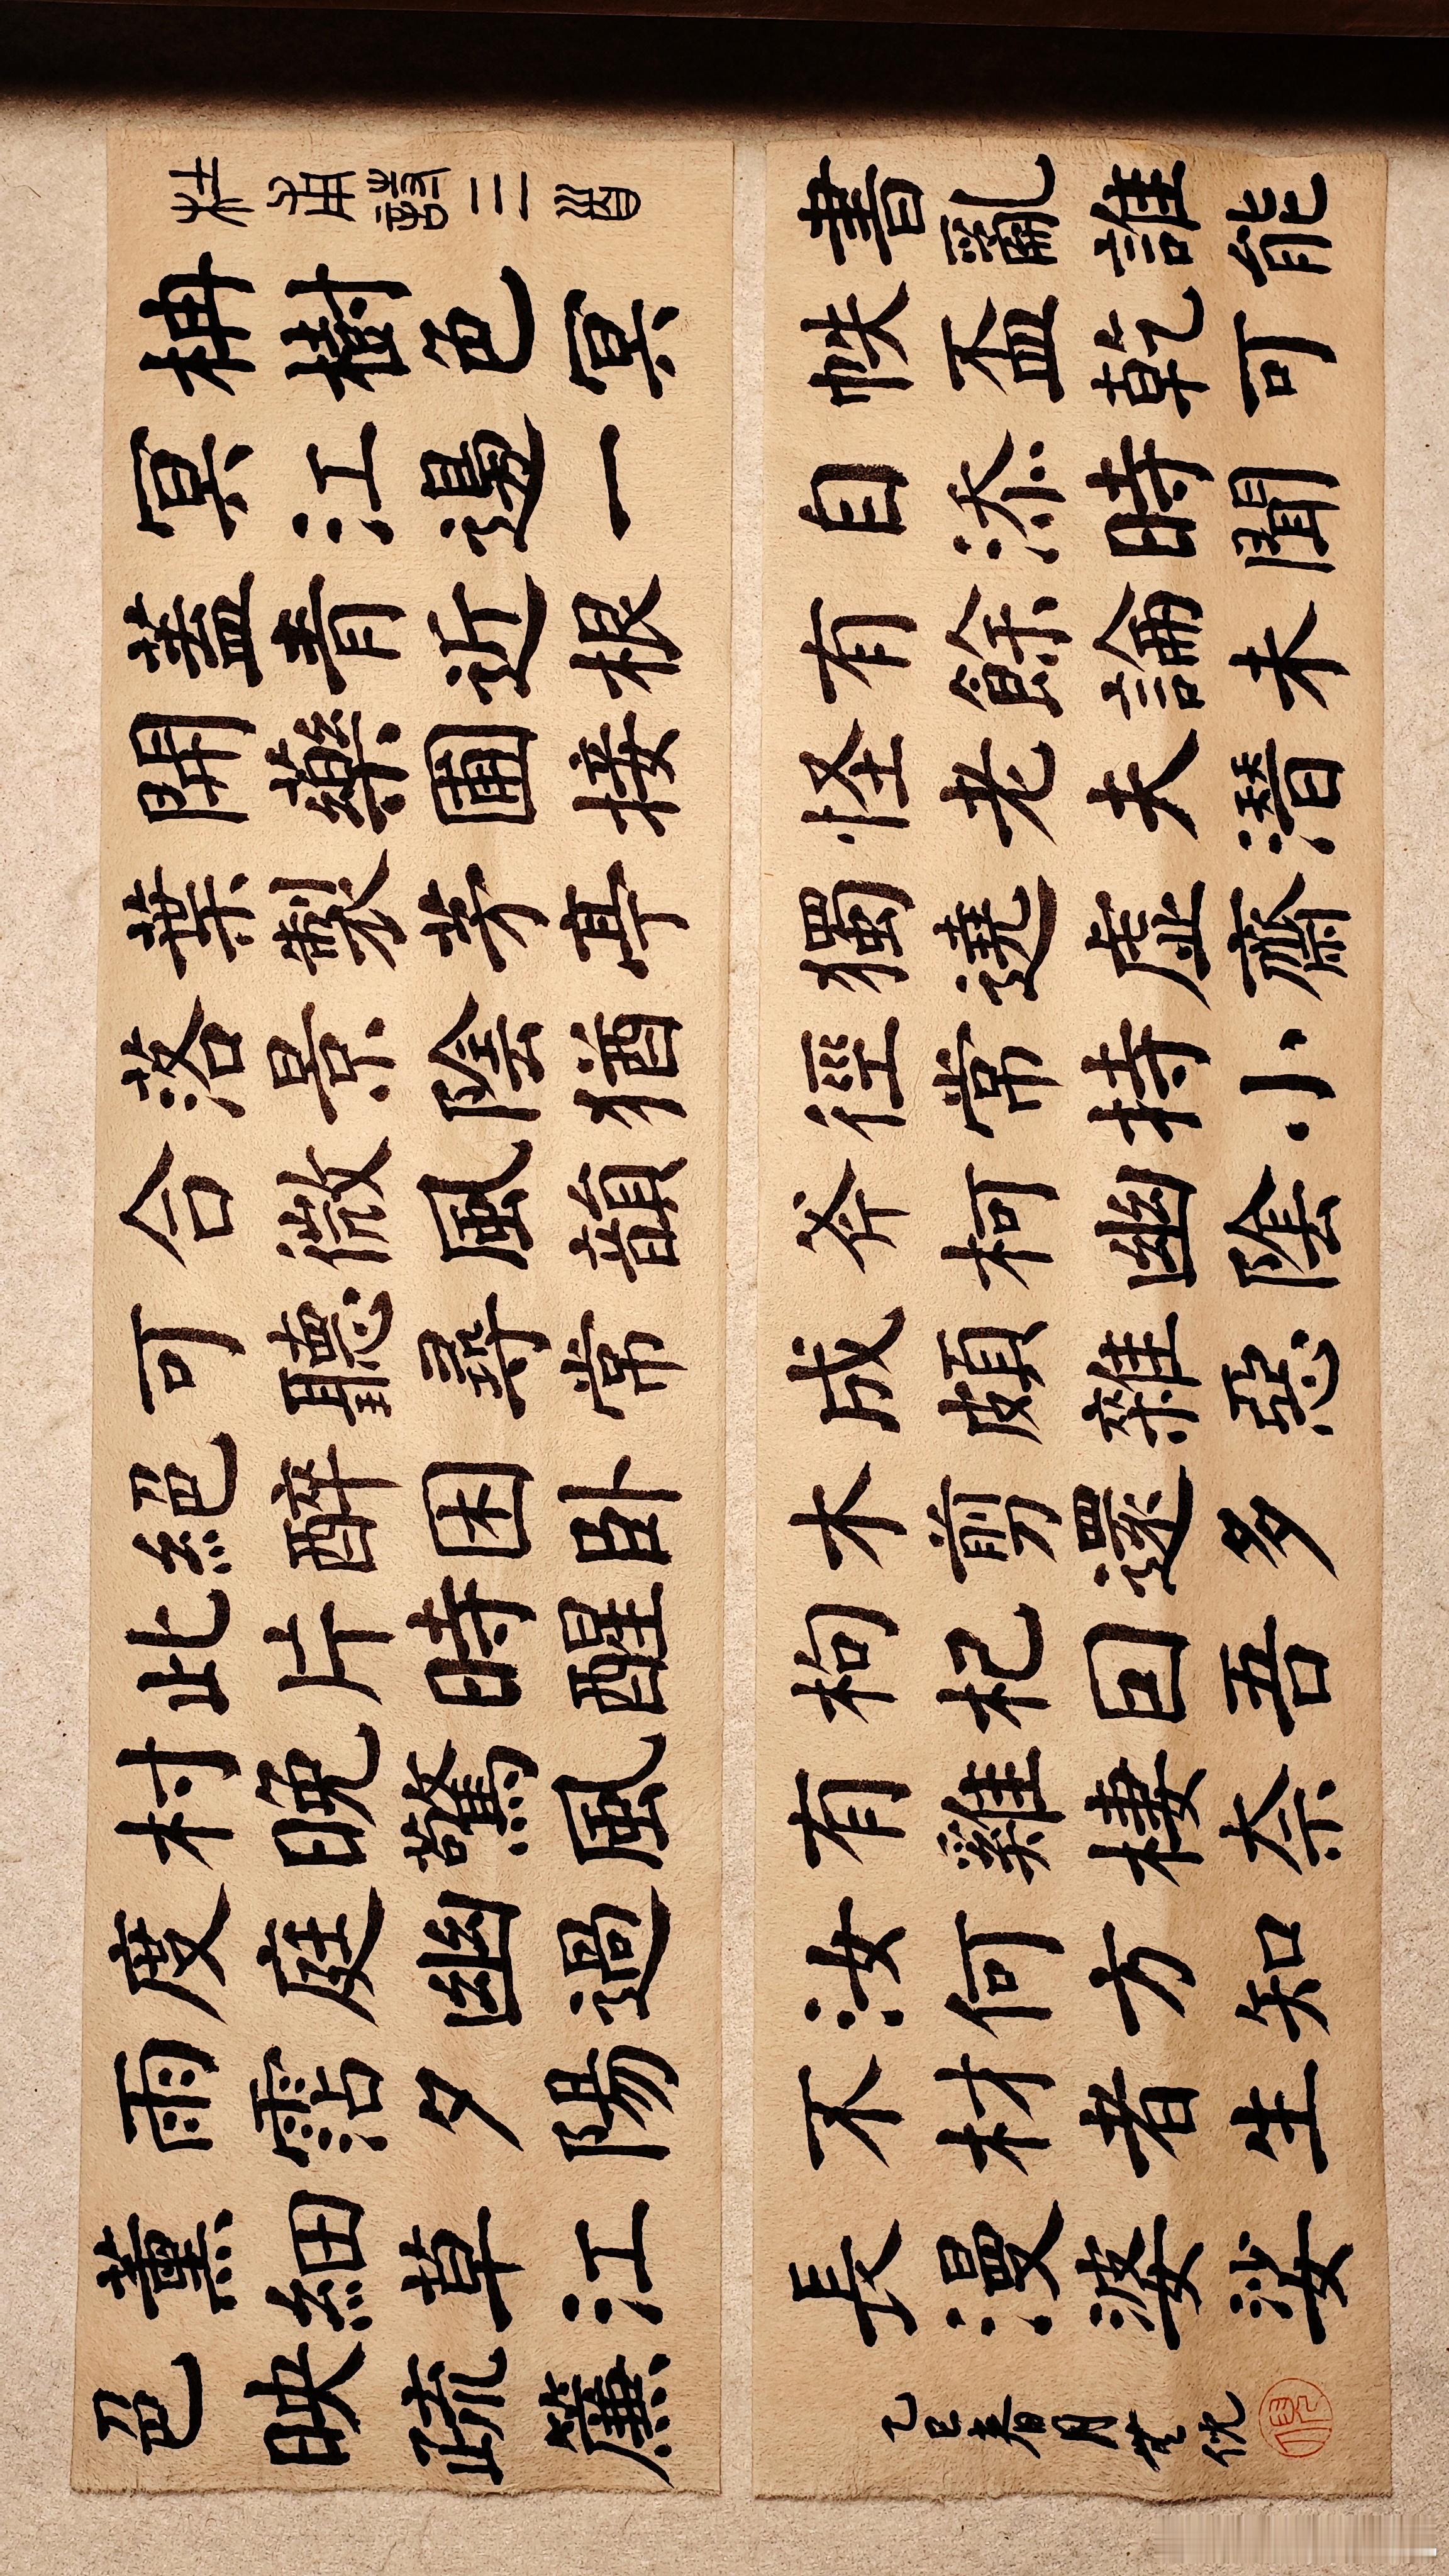 杜甫詩三首
枏樹色冥
冥江邊一
蓋青近根
開藥圃接
葉製茅亭
落景陰猶
合微風韻
可聽尋常
絕醉困臥
此片時醒
村晚驚風
度庭幽過
雨霑夕陽
薰細草江
色映疏簾
書亂誰能
帙盃乾可
自添時聞
有餘論未
怪老夫潛
獨遶虛齋
徑常持小
斧柯幽陰
成頗雜惡
木剪還多
枸杞固吾
有雞棲奈
汝何方知
不材者生
長漫婆娑
乙巳春月